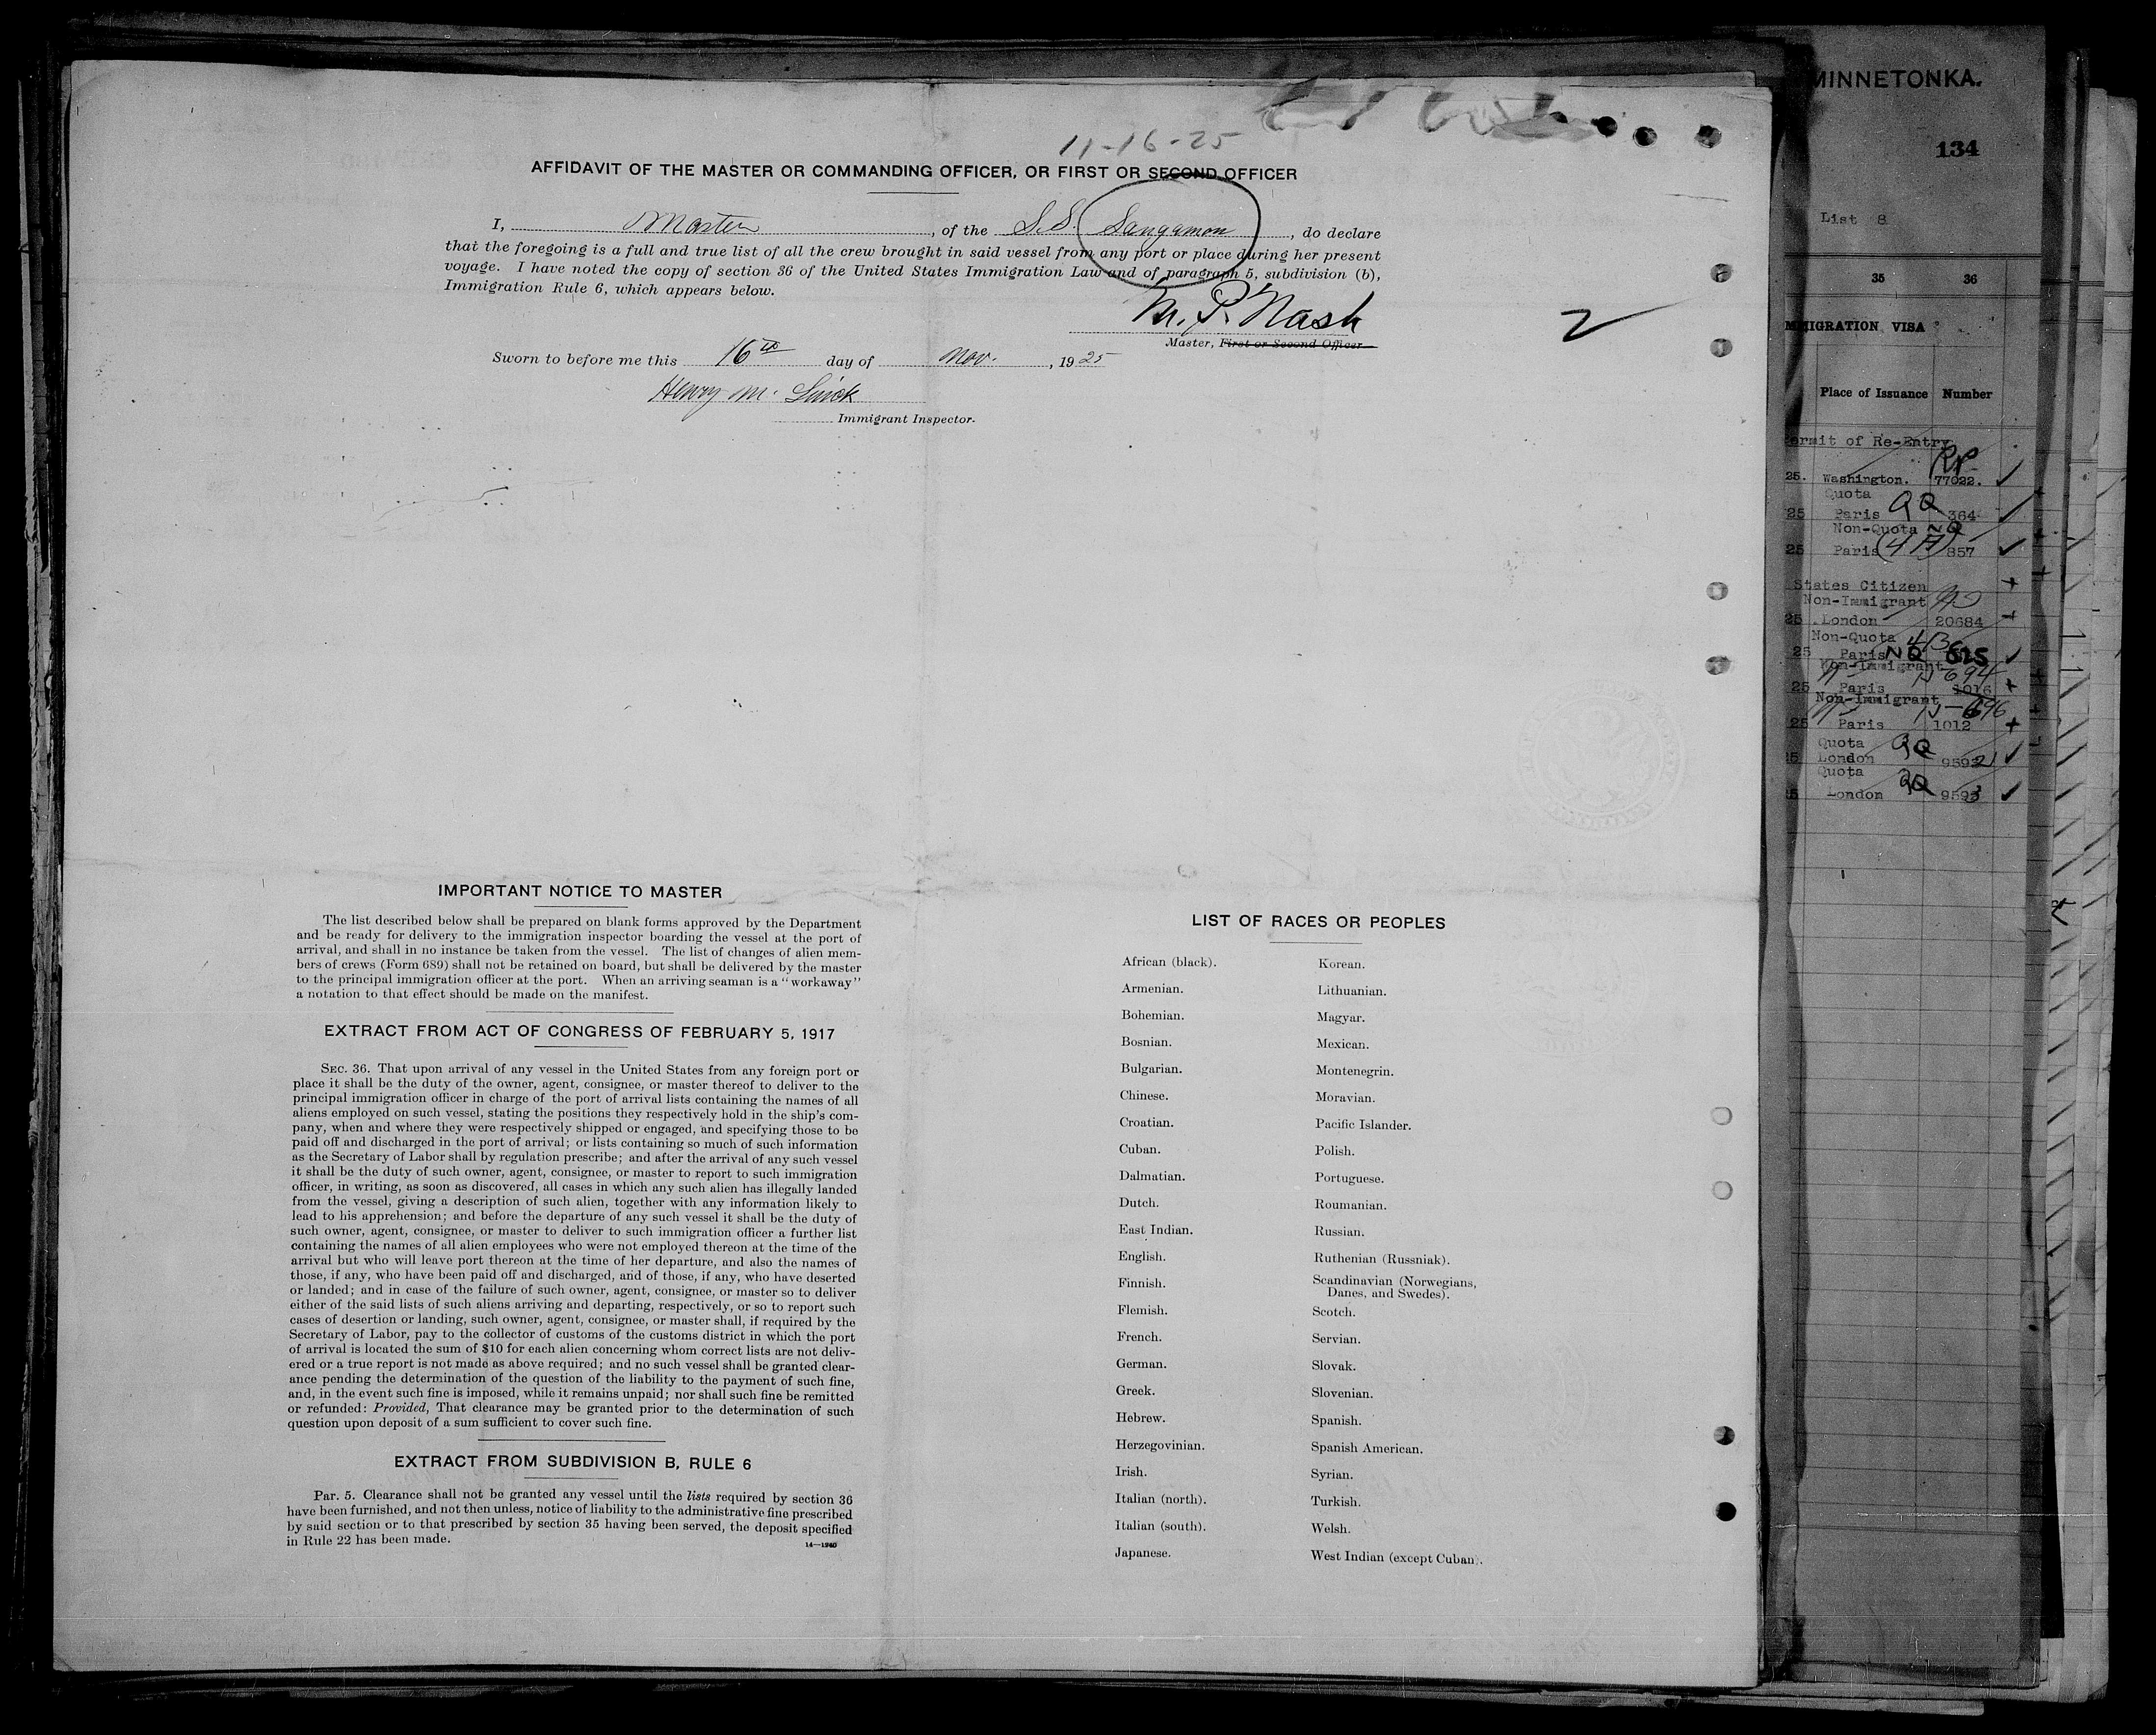 11-16-25
AFFIDAVIT OF THE MASTER OR COMMANDING OFFICER, OR FIRST OR SECOND OFFICER
I, Master, of the S.S. Sangamon, do declare
that the foregoing is a full and true list of all the crew brought in said vessel from any port or place during her present
voyage. I have noted the copy of section 36 of the United States Immigration Law and of paragraph 5, subdivision (b),
Immigration Rule 6, which appears below.
M. P. Nash
2
Master, First or Second Officer
Sworn to before me this 16th day of Nov., 1925
Henry M.
Immigrant Inspector.
IMPORTANT NOTICE TO MASTER
The list described below shall be prepared on blank forms approved by the Department
and be ready for delivery to the immigration inspector boarding the vessel at the port of
arrival, and shall in no instance be taken from the vessel. The list of changes of alien mem-
bers of crews (Form 689) shall not be retained on board, but shall be delivered by the master
to the principal immigration officer at the port. When an arriving seaman is a "workaway"
a notation to that effect should be made on the manifest.
EXTRACT FROM ACT OF CONGRESS OF FEBRUARY 5, 1917
SEC. 36. That upon arrival of any vessel in the United States from any foreign port or
place it shall be the duty of the owner, agent, consignee, or master thereof to deliver to the
principal immigration officer in charge of the port of arrival lists containing the names of all
aliens employed on such vessel, stating the positions they respectively hold in the ship's com-
pany, when and where they were respectively shipped or engaged, and specifying those to be
paid off and discharged in the port of arrival; or lists containing so much of such information
as the Secretary of Labor shall by regulation prescribe; and after the arrival of any such vessel
it shall be the duty of such owner, agent, consignee, or master to report to such immigration
officer, in writing, as soon as discovered, all cases in which any such alien has illegally landed
from the vessel, giving a description of such alien, together with any information likely to
lead to his apprehension; and before the departure of any such vessel it shall be the duty of
such owner, agent, consignee, or master to deliver to such immigration officer a further list
containing the names of all alien employees who were not employed thereon at the time of the
arrival but who will leave port thereon at the time of her departure, and also the names of
those, if any, who have been paid off and discharged, and of those, if any, who have deserted
or landed; and in case of the failure of such owner, agent, consignee, or master so to deliver
either of the said lists of such aliens arriving and departing, respectively, or so to report such
cases of desertion or landing, such owner, agent, consignee, or master shall, if required by the
Secretary of Labor, pay to the collector of customs of the customs district in which the port
of arrival is located the sum of $10 for each alien concerning whom correct lists are not deliv-
ered or a true report is not made as above required; and no such vessel shall be granted clear-
ance pending the determination of the question of the liability to the payment of such fine,
and, in the event such fine is imposed, while it remains unpaid; nor shall such fine be remitted
or refunded: Provided, That clearance may be granted prior to the determination of such
question upon deposit of a sum sufficient to cover such fine.
EXTRACT FROM SUBDIVISION B, RULE 6
Par. 5. Clearance shall not be granted any vessel until the lists required by section 36
have been furnished, and not then unless, notice of liability to the administrative fine prescribed
by said section or to that prescribed by section 35 having been served, the deposit specified
in Rule 22 has been made.
14—1240
LIST OF RACES OR PEOPLES
African (black).
Armenian.
Bohemian.
Bosnian.
Bulgarian.
Chinese.
Croatian.
Cuban.
Dalmatian.
Dutch.
East Indian.
English.
Finnish.
Flemish.
French.
German.
Greek.
Hebrew.
Herzegovinian.
Irish.
Italian (north).
Italian (south).
Japanese.
Korean.
Lithuanian.
Magyar.
Mexican.
Montenegrin.
Moravian.
Pacific Islander.
Polish.
Portuguese.
Roumanian.
Russian.
Ruthenian (Russniak).
Scandinavian (Norwegians,
Danes, and Swedes).
Scotch.
Servian.
Slovak.
Slovenian.
Spanish.
Spanish American.
Syrian.
Turkish.
Welsh.
West Indian (except Cuban).
MINNETONKA.
134
List 8
35 36
MIGRATION VISA
Place of Issuance Number
ermit of Re-Entry
RP
25. Washington. 77022.
Quota
25 Paris QQ 364
Non-Quota NQ
25 Paris (4A) 857
States Citizen
Non-Immigrant
25 London 20684
Non-Quota
25 Paris NQ 615
Non-Immigrant
25 Paris 1016
Non-Immigrant
25 Paris 1012
Quota QQ
25 London 9592
Quota QQ
5 London 9593